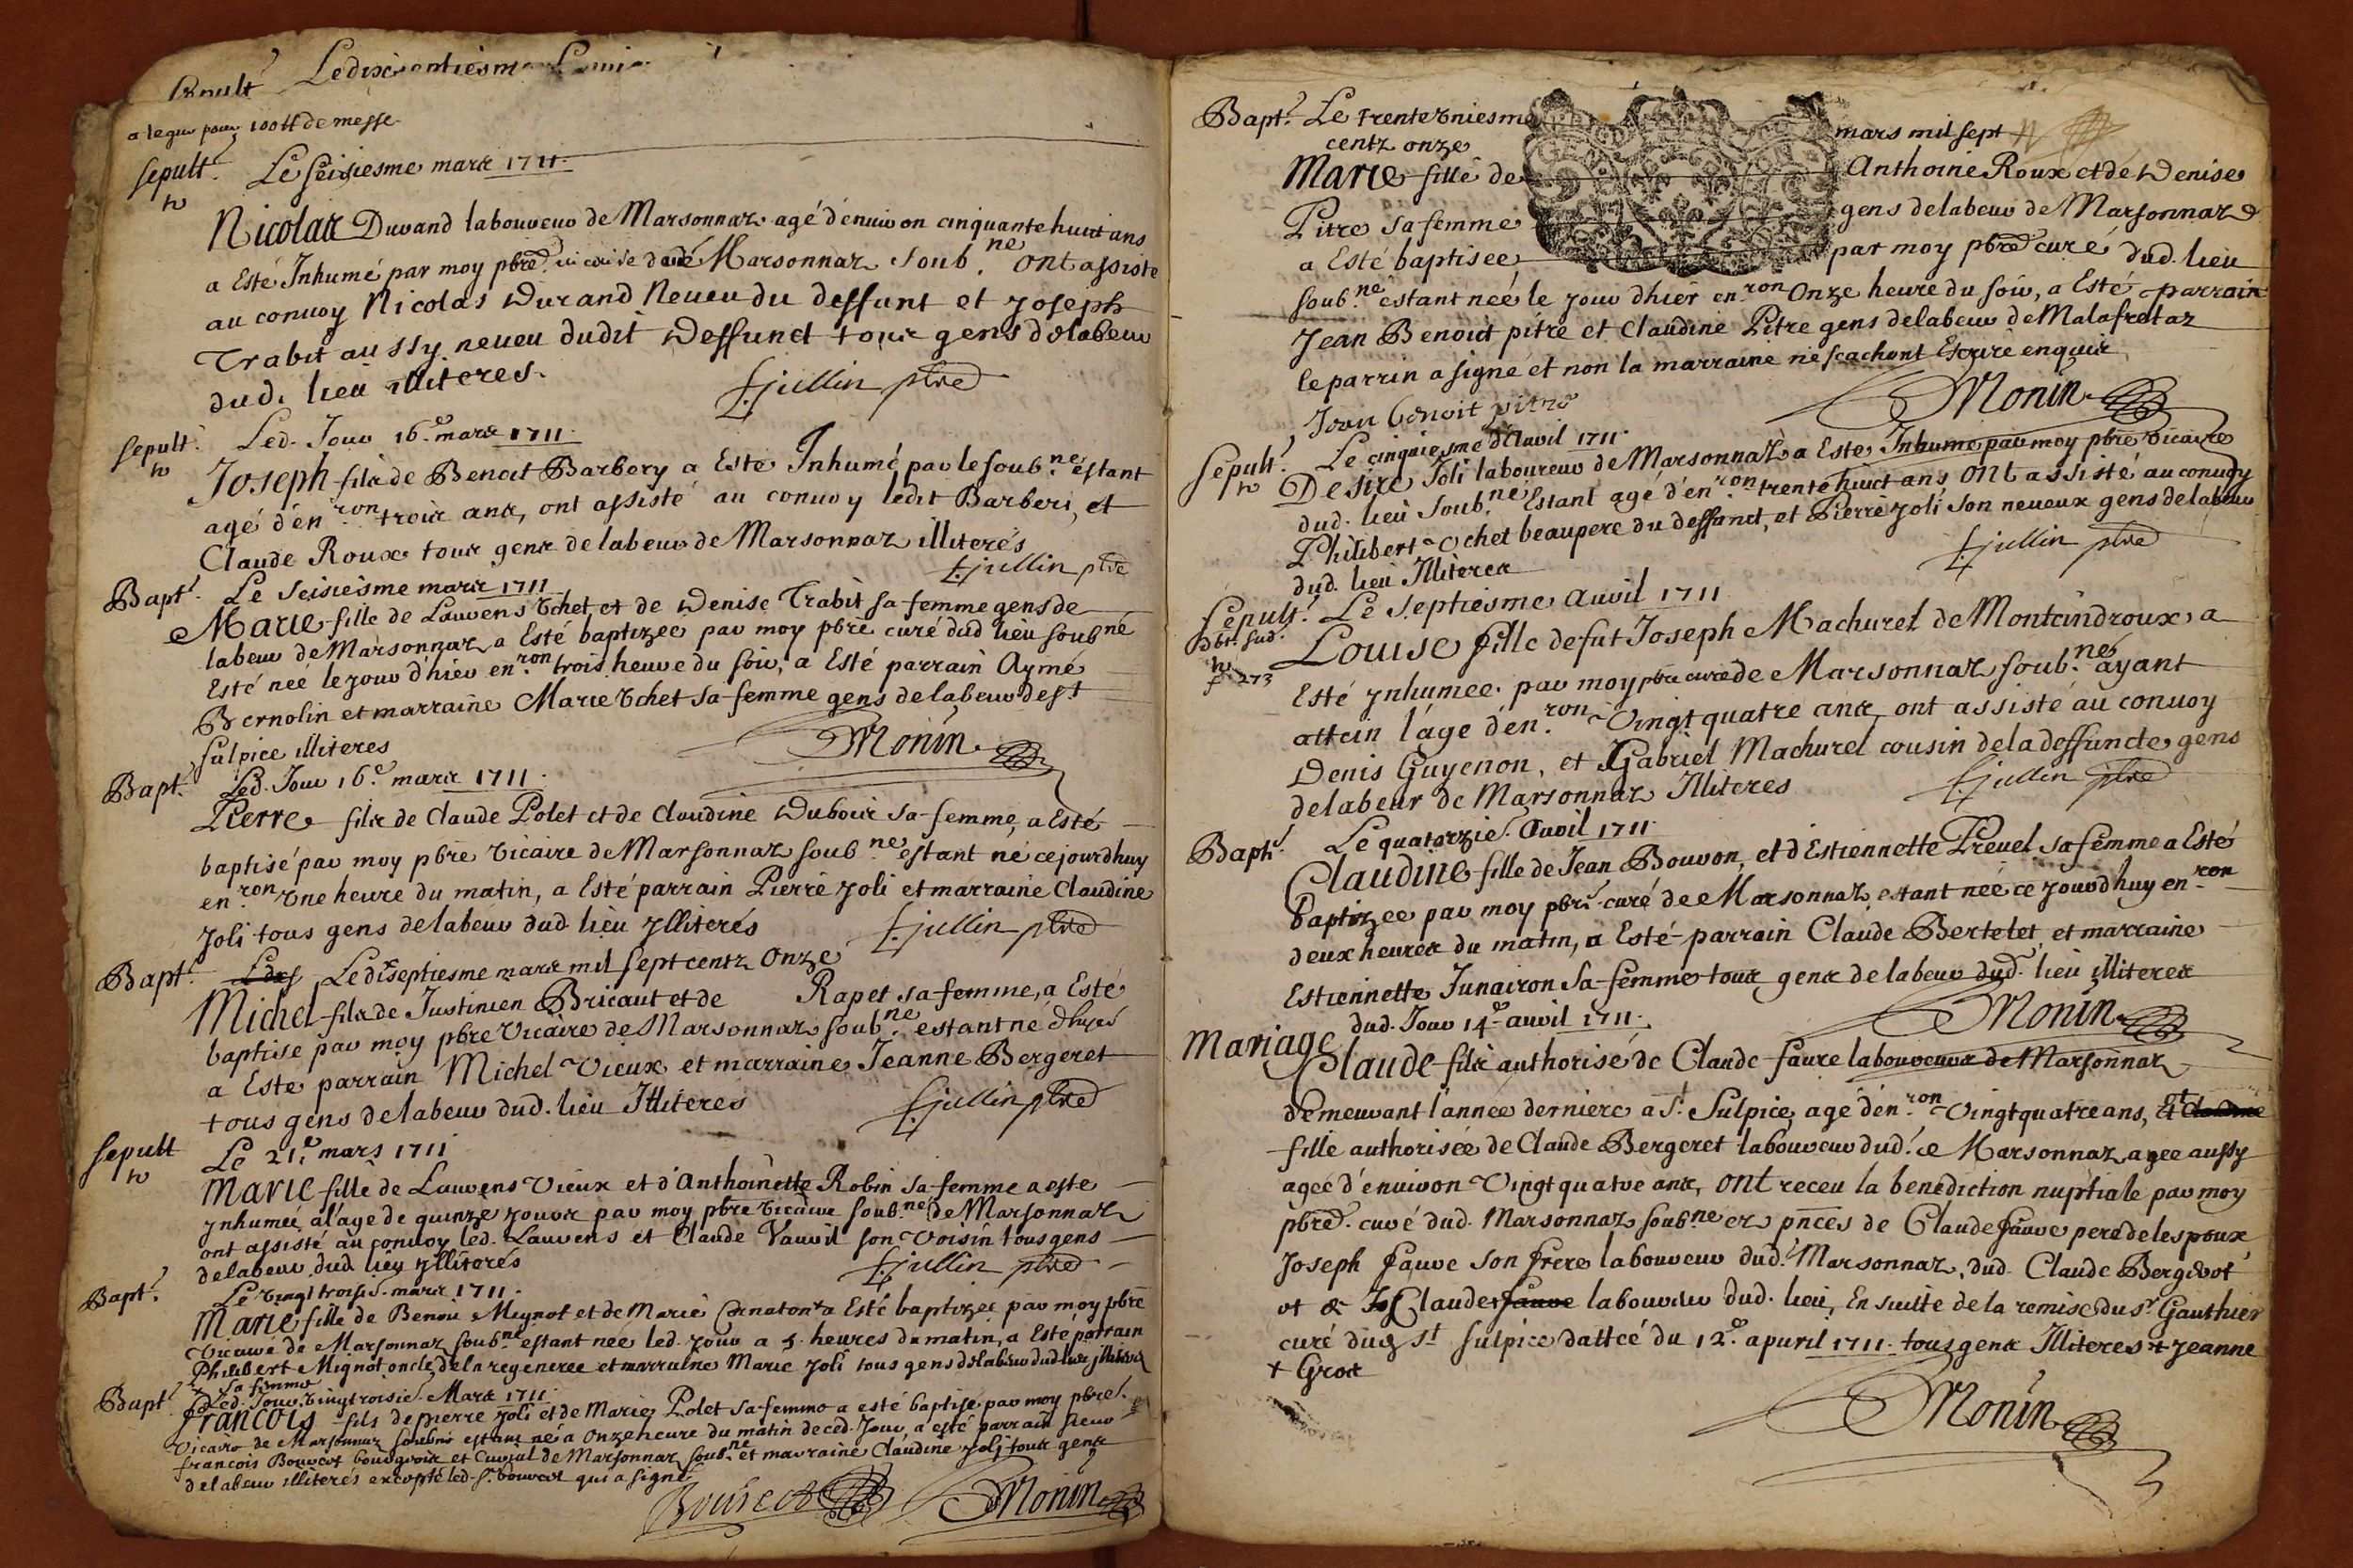 Sepult.
a legué pour 100 lt de messe
Sepult. Le seisiesme mars 1711.
Nicolas Durand laboureur de Marsonnaz agé d'environ cinquante huict ans
a Esté Inhumé par moy pbre vicaire de Marsonnaz Soub.né Ont assisté
au convoy Nicolas Durand Neveu du deffunt et Joseph
Trabit aussy neveu dudit Deffunct tous gens de labeur
dud. lieu illiteres.
F. jullin ptre
Sepult. Led. Jour 16.e mars 1711.
Joseph fils de Benoit Barbery a Esté Inhumé par le soub.né estant
agé d'en.ron trois ans, ont assisté au convoy ledit Barberi, et
Claude Roux tous gens de labeur de Marsonnaz illiterés
F. jullin ptre
Bapt. Le seisiesme mars 1711
Marie fille de Laurens Uchet et de Denise Trabit sa femme gens de
labeur de Marsonnaz a Esté baptizeé par moy pbre curé dud lieu soubné
Esté neé le jour d'hier en.ron trois heure du soir, a Esté parrain Aymé
Bernolin et marraine Marie Uchet sa femme gens de labeur de St
Sulpice illiteres
Monin
Bapt. Led. Jour 16.e mars 1711.
Pierre fils de Claude Polet et de Claudine Dubois sa femme, a Esté
baptisé par moy pbre vicaire de Marsonnaz soub.né estant né cejourdhuy
en.ron Une heure du matin, a Esté parrain Pierre Joli et marraine Claudine
Joli tous gens de labeur dud. lieu Jlliterés
F. jullin ptre
Bapt. Le diseptiesme mars mil sept centz Onze
Michel fils de Justinien Bricaut et de Rapet sa femme, a Esté
baptise par moy pbre Vicaire de Marsonnaz soub.né estant né d'hyer
a Esté parrain Michel Vieux et marraine Jeanne Bergeret
tous gens de labeur dud. lieu Illiteres
F. jullin ptre
Sepult Le 21.e mars 1711
Marie fille de Laurens Vieux et d'Anthoinette Robin sa femme a este
ynhumeé a l'age de quinze jours par moy pbre vicaire soub.né de Marsonnaz
ont assisté au convoy led. Laurens et Claude Vauvil son Voisin tous gens
de labeur dud. lieu Jlliterés
F. jullin ptre
Bapt. Le vingt troisi.e mars 1711.
Marie fille de Benoit Mignot et de Marie a Esté baptizeé par moy pbre
vicaire de Marsonnaz soub.né estant neé led. jour a 5. heures du matin, a Esté parrain
Philibert Mignot oncle de la regeneree et marraine Marie Joli tous gens de labeur dud lieu jlliteres
sa femme
Bapt. Led. Jour vingtroisie. Mars 1711.
Francois fils de pierre Joli et de Marie Polet sa femme a esté baptisé par moy pbre.
Vicaire de Marsonnaz soubné estant né a onze heure du matin de ced. Jour, a esté parrain sieur
francois Bouvert bourgeois et curial de Marsonnaz soub.né et marraine Claudine Joli tous gens
de labeur illiterés excepté led. sr. bouvert qui a signé
Monin
Bapt. Le trente Uniesme mars mil sept
centz onze
Marie fille de Anthoine Roux et de Denise
Pitre sa femme gens de labeur de Marsonnaz
a Esté baptiseé par moy pbre curé dud. lieu
soub.né estant neé le jour d'hier en.ron Onze heure du soir, a Esté parrain
Jean Benoict pitre et Claudine Pitre gens de labeur de Malafretaz
le parrin a signé et non la marraine ne scachant Escrire enquis
Monin
Jean benoit pitre
Sepult. Le cinquiesme d'Avvil 1711.
Desiré Joli laboureur de Marsonnaz a Esté Inhumé par moy pbre vicaire
dud. lieu soub.né Estant agé d'en.ron trente huict ans Ont assisté au convoy
Philibert Uchet beaupere du deffunct, et Pierre Joli son neveux gens de labeur
dud. lieu Illiteres
F. jullin ptre
Sepult. Le septiesme avvil 1711
f. 273
Louise fille de fut Joseph Machurel de Monteindroux a
Esté ynhumee. par moy pbre curé de Marsonnaz soub.né ayant
attein l'age d'en.ron Vingt quatre ans, ont assisté au convoy
Denis Guyenon, et Gabriel Machurel cousin de la deffuncte gens
de labeur de Marsonnaz Illiteres
F. jullin ptre
Bapt. Le quatorzie. avvil 1711.
Claudine fille de Jean Bouvon, et d'Estiennette Prevel sa femme a Esté
baptizee par moy pbre curé de Marsonnaz, estant neé ce jourd'huy en.ron
deux heures du matin, a Esté parrain Claude Bertelet et marraine
Estiennette Junairon sa femme tous gens de labeur dud. lieu illiteres
Monin
Mariage dud. Jour 14.e avvil 1711.
Claude fils authorisé de Claude faure laboureur de Marsonnaz
demeurant l'anneé derniere a St. Sulpice, agé d'en.ron Vingt quatre ans, et
fille authoriseé de Claude Bergeret laboureur dud. Marsonnaz ageé aussy
ageé d'environ Vingt quatre ans, Ont receu la benediction nuptiale par moy
pbre. curé dud. Marsonnaz soub.né ez pnces de Claude faure pere de lespoux
Joseph faure son frere laboureur dud. Marsonnaz, dud. Claude Bergerot
et Claude faure laboureur dud. lieu, En suitte de la remise du sr. Gauthier
curé dud St Sulpice datteé du 12.e apvril 1711. tous gens Illiteres + Jeanne
+ Gros
Monin